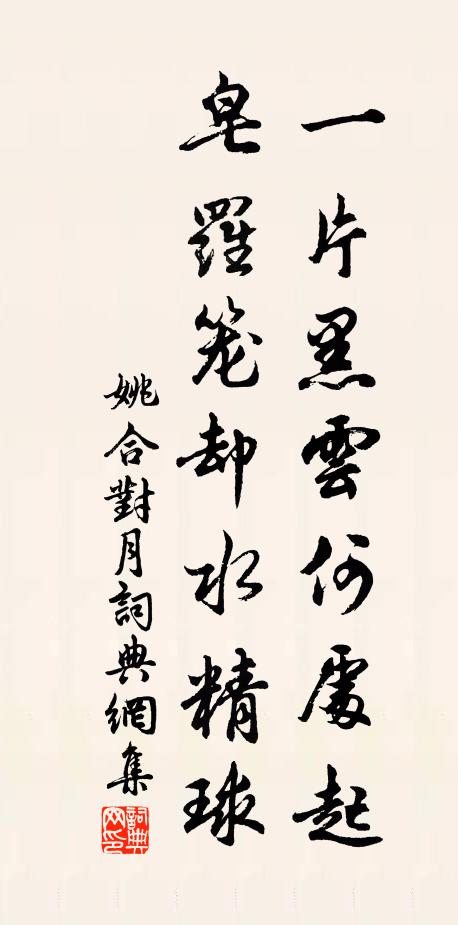 一片黑雲何處起
皂羅笼却水精球
姚合對月詞典網集
詞典網印